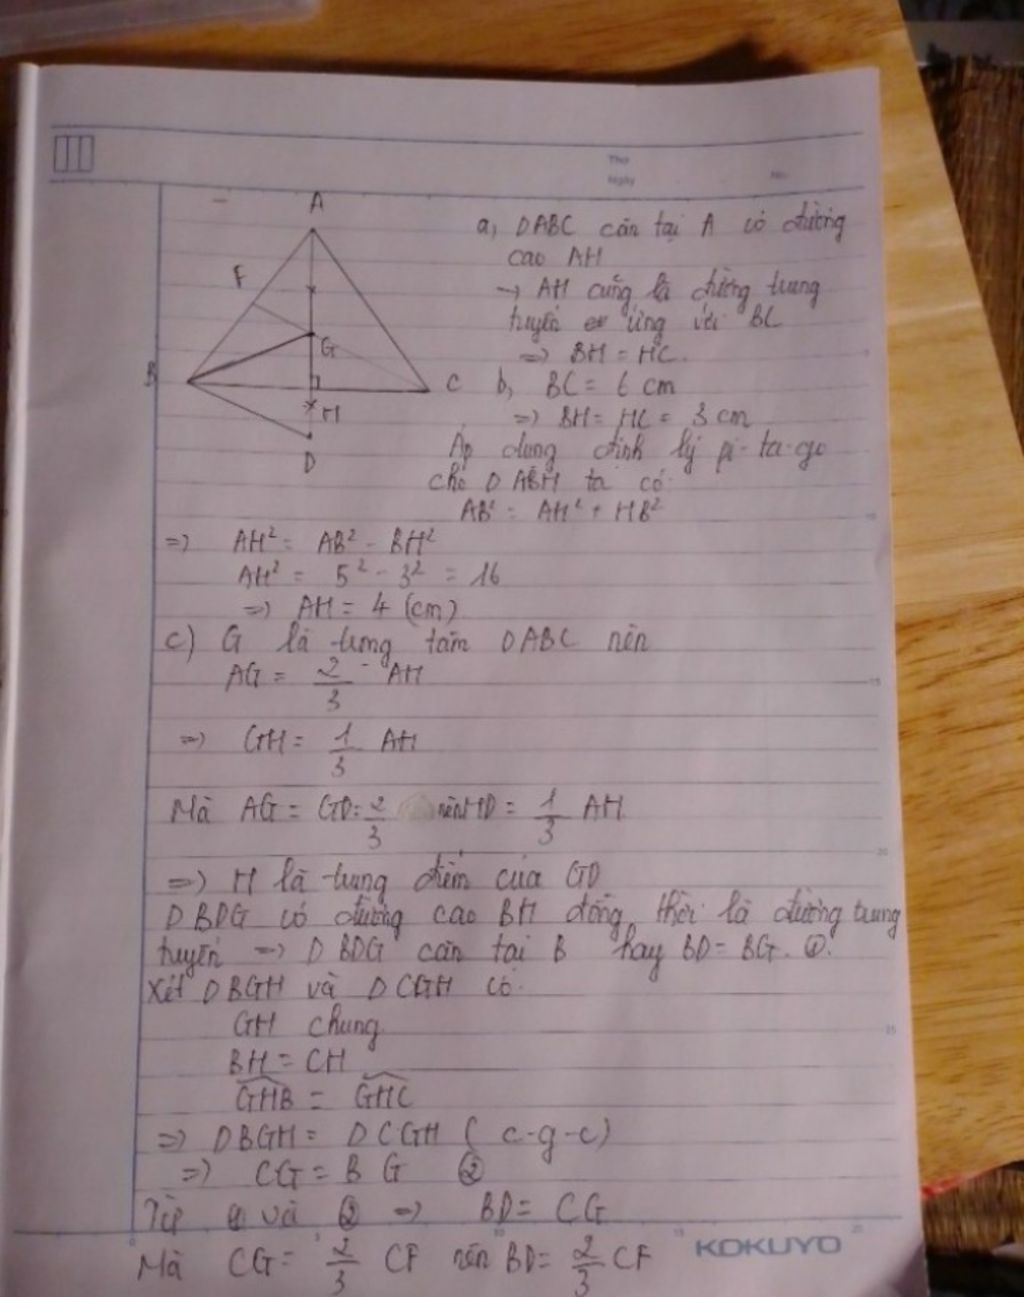 Thứ
Ngày
No.
A
F
G
B
C
H
D
a, DABC cân tại A có đường
cao AH
→ AH cũng là đường trung
tuyến ứng với BC
=> BH = HC.
b, BC = 6 cm
=> BH = HC = 3 cm
Áp dụng định lý pi-ta-go
cho D ABH ta có
AB² = AH² + HB²
=> AH² = AB² - BH²
AH² = 5² - 3² = 16
=> AH = 4 (cm)
c) G là trọng tâm DABC nên
AG = 2/3 AH
=> GH = 1/3 AH
Mà AG = GD = 2/3 nên HD = 1/3 AH
=> H là trung điểm của GD
D BDG có đường cao BH đồng thời là đường trung
tuyến => D BDG cân tại B hay BD = BG. ①
Xét D BGH và D CGH có
GH chung
BH = CH
GHB = GHC
=> D BGH = D CGH ( c-g-c)
=> CG = B G ②
Từ ① và ② => BD = CG
Mà CG = 2/3 CF nên BD = 2/3 CF
KOKUYO